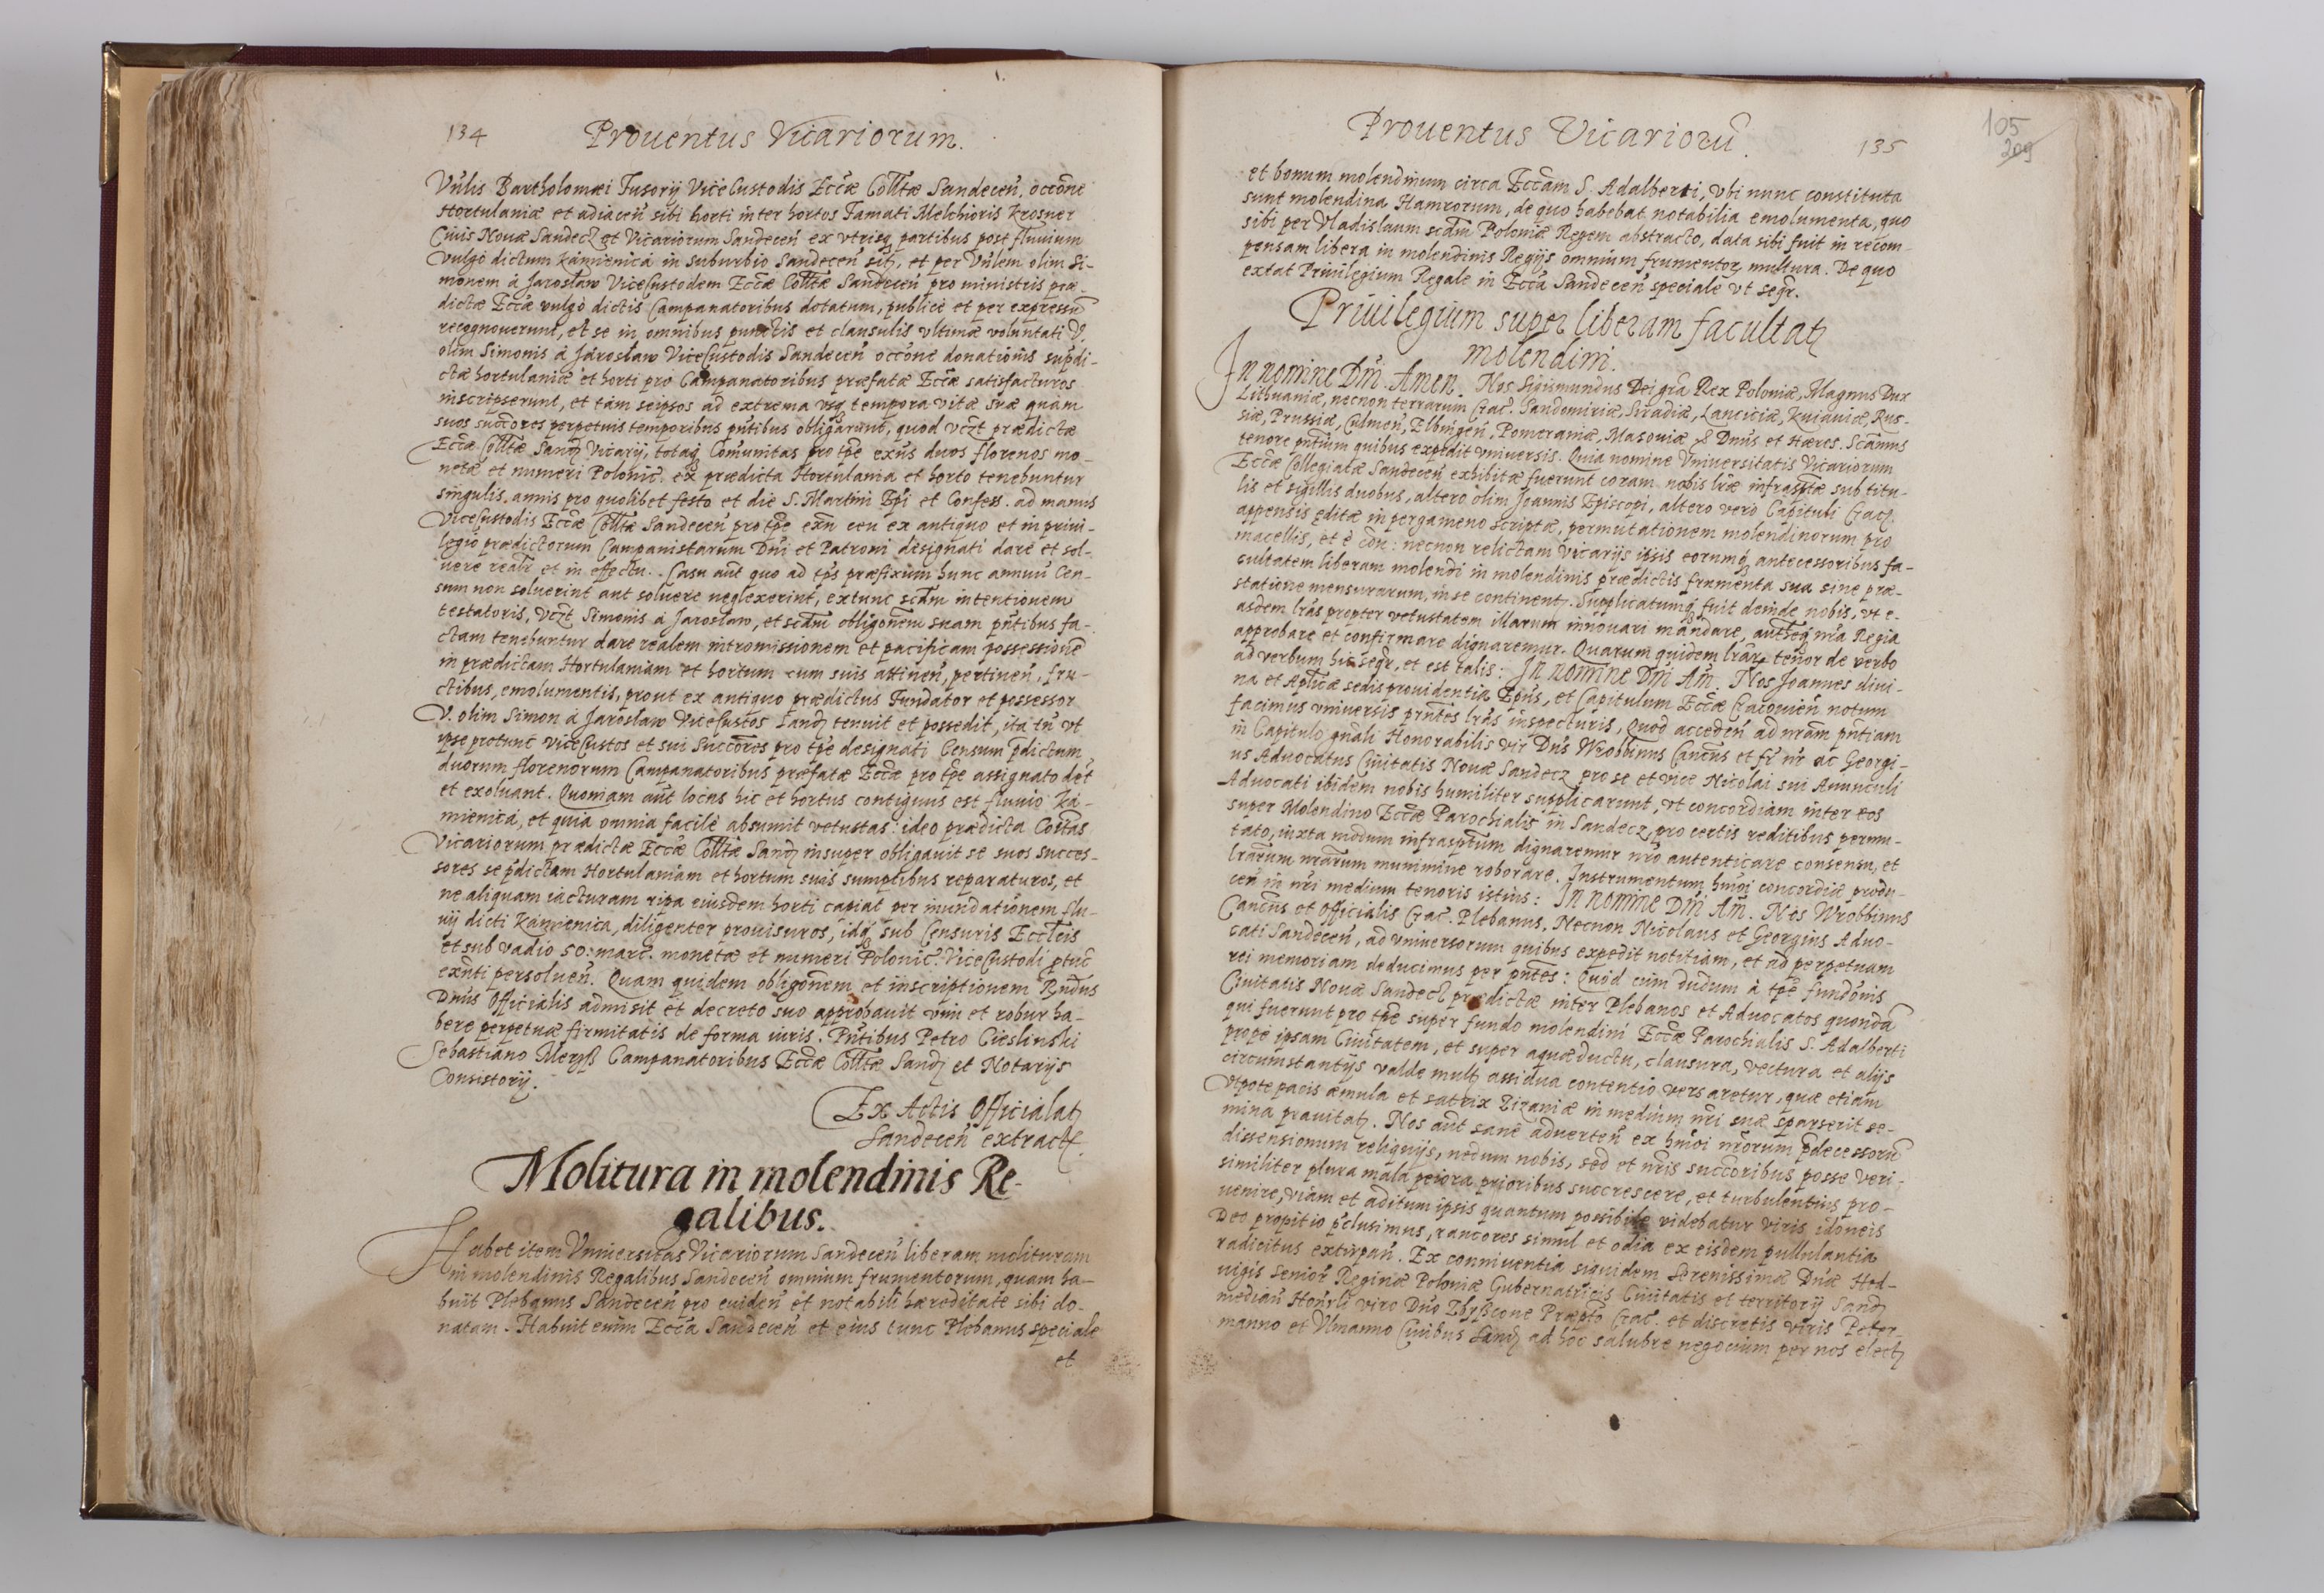 134 Prouentus Vicariorum.
Vn̄lis Bartholomæi Fusorij Vice Custodis Eccæ Colltæ Sandecen̄, occōne
Hortulaniæ et adiacen̄ sibi horti inter hortos Famati Melchioris Krosner
Ciuis Nouæ Sandecz et Vicariorum Sandecen̄ ex vtrisq partibus post fluuium
vulgò dictum Kamienica in suburbio Sandecen̄ sitj, et per Vn̄lem olim Si-
monem à Jarosław ViceCustodem Eccæ Colltæ Sandecen̄ pro ministris præ-
dictæ Eccæ vulgò dictis Campanatoribus dotatum, publicè et per expressū
recognouerunt, et se in omnibus punctis et clausulis vltimæ voluntati V.
olim Simonis à Jarosław ViceCustodis Sandecen̄ occōne donationis supdi-
ctæ hortulaniæ et horti pro Campanatoribus præfatæ Eccæ satisfacturos
inscripserunt, et tam seipsos ad extrema vsq tempora vitæ suæ quàm
suos succōres perpetuis temporibus pn̄tibus obligarunt, quod vczt prædictæ
Eccæ Colltæ Sandj Vicarij, totaq Comunitas pro tpe exn̄s duos florenos mo-
netæ et numeri Polonic̄. ex prædicta Hortulania et horto tenebuntur
singulis annis pro quolibet festo et die S. Martini Ep̄i et Confess. ad manus
ViceCustodis Eccæ Colltæ Sandecen̄ pro tpe exn̄ ceu ex antiquo et in priui-
legio prædictorum Campanistarum Dn̄i et Patroni designati dare et sol-
uere realr et in effectu. Casu aūt quo ad tp̄s præfixum hunc annuū Cen-
sum non soluerint aut soluere neglexerint, extunc scdm intentionem
testatoris, vczt Simonis à Jarosław, et scdm obligōnem suam pn̄tibus fa-
ctam tenebuntur dare realem intromissionem et pacificam possessionē
in prædictam Hortulaniam et hortum cum suis attinen̄, pertinen̄, fru-
ctibus, emolumentis, prout ex antiquo prædictus Fundator et possessor
V. olim Simon à Jarosław ViceCustos Sandj tenuit et possedit, ita tn̄ vt
ipse protunc ViceCustos et sui Succōres pro tpe designati Censum pdictum
duorum florenorum Campanatoribus præfatæ Eccæ pro tpe assignato det
et exoluant. Quoniam aūt locus hic et hortus contiguus est fluuio Ka-
mienica, et quia omnia facilè absumit vetustas: ideo prædicta Cōitas
Vicariorum prædictæ Eccæ Colltæ Sandj insuper obligauit se suos succes-
sores se pdictam Hortulaniam et hortum suis sumptibus reparaturos, et
ne aliquam iacturam ripa eiusdem horti capiat per inundationem flu-
uij dicti Kamienica, diligenter prouisuros, idq sub Censuris Ecclcis
et sub vadio 50: marc. monetæ et numeri Polonic̄. ViceCustodi ptuc̄
exn̄ti persoluen̄. Quam quidem obligōnem et inscriptionem Rn̄dus
Dnūs Officialis admisit et decreto suo approbauit vim et robur ha-
bere perpetuæ firmitatis de forma iuris. Pn̄tibus Petro Cieslinski
Sebastiano Campanatoribus Eccæ Colltæ Sandj et Notarijs
Consistorij.
Ex Actis Officialatj
Sandecen̄ extractj.
Molitura in molendinis Re-
galibus.
Habet item Vniuersitas Vicariorum Sandecen̄ liberam molituram
in molendinis Regalibus Sandecen̄ omnium frumentorum, quam ha-
buit Plebanus Sandecen̄ pro euiden̄ et notabili hæreditate sibi do-
natam. Habuit enim Ecca Sandecen̄ et eius tunc Plebanus speciale
et
Prouentus Vicariorū. 135
105
209
et bonum molendinum circa Eccam S. Adalberti, vbi nunc constituta
sunt molendina Hamrorum, de quo habebat notabilia emolumenta, quo
sibi per Vladislaum scdm Poloniæ Regem abstracto, data sibi fuit in recom-
pensam libera in molendinis Regijs omnium frumentor multura. De quo
extat Priuilegium Regale in Ecca Sandecen̄ speciale vt seqr.
Priuilegium super liberam facultatj
molendini.
In nomine Dn̄i. Amen. Nos Sigismundus Dei gra Rex Poloniæ, Magnus Dux
Lithuaniæ, necnon terrarum Crac̄. Sandomiriæ, Siradiæ, Lanciciæ, Kuiauiæ, Rus-
siæ, Prussiæ, Culmen̄, Elbingen̄, Pomeraniæ, Masouiæ & Dnūs et Hæres. Scānus
tenore pn̄tium quibus expedit vniuersis. Quia nomine Vniuersitatis Vicariorum
Eccæ Collegiatæ Sandecen̄ exhibitæ fuerunt coram nobis lræ infrasptæ sub titu-
lis et sigillis duobus, altero olim Joannis Episcopi, altero verò Capituli Cracj.
appensis editæ in pergameno scriptæ, permutationem molendinorum pro
macellis, et è con: necnon relictam Vicarijs ipsis eorumq antecessoribus fa-
cultatem liberam molendi in molendinis prædictis frumenta sua sine præ-
statione mensurarum, in se continentj. Supplicatumq fuit deinde nobis, vt e-
asdem lras propter vetustatem illarum innouari mandare, autteq nra Regia
approbare et confirmare dignaremur. Quarum quidem lrar tenor de verbo
ad verbum hic seqr, et est talis: In nomine Dn̄i Am̄. Nos Joannes diui-
na et Aplicæ sedis prouidentia Ep̄us, et Capitulum Eccæ Cracouien̄ notum
facimus vniuersis pn̄tes lras inspecturis, Quod acceden̄ ad nram pn̄tiam
in Capitulo gnali Honorabilis vir Dn̄s Wrobbinus Canc̄us et fr nr ac Georgi-
us Aduocatus Ciuitatis Nouæ Sandecz pro se et vice Nicolai sui Auunculi
Aduocati ibidem nobis humiliter supplicarunt, vt concordiam inter eos
super Molendino Eccæ Parochialis in Sandecz, pro certis reditibus permu-
tato, iuxta modum infrasptum dignaremur nro autenticare consensu, et
lrarum nrarum munimine roborare. Instrumentum hmōi concordiæ produ-
cen̄ in nri medium tenoris istius: In nomine Dn̄i Am̄. Nos Wrobbinus
Canc̄us et Officialis Crac̄. Plebanus, Necnon Nicolaus et Georgius Aduo-
cati Sandecen̄, ad vniuersorum quibus expedit notitiam, et ad perpetuam
rei memoriam deducimus per pn̄tes: Quod cum dudum à tpe fundōnis
Ciuitatis Nouæ Sandecz prædictæ inter Plebanos et Aduocatos quondā
qui fuerunt pro tpe super fundo molendini Eccæ Parochialis S. Adalberti
propè ipsam Ciuitatem, et super aquæductu, clausura, vectura et alijs
circumstantijs valde multj assidua contentio versaretur, quæ etiam
vtpote pacis æmula et satrix Zizaniæ in medium nri suæ sparserit se-
mina prauitatj. Nos aūt sanè aduerten̄ ex hmōi nrorum pdecessorū
dissensionum reliquijs, nedum nobis, sed et nris succōribus posse veri-
similiter plura mala peiora prioribus succrescere, et turbulentius pro-
uenire, viam et aditum ipsis quantum possibile videbatur viris idoneis
Deo propitio pclusimus, rancores simul et odia ex eisdem pullulantia
radicitus extirpan̄. Ex conniuentia siquidem Serenissimæ Dn̄æ Hed-
uigis Senior̄ Reginæ Poloniæ Gubernatricis Ciuitatis et territorij Sandj
median̄ Hon̄rli viro Dn̄o Præpto Crac̄. et discretis viris Peter-
manno et Vlmanno Ciuibus Sandj ad hoc salubre negocium per nos electj